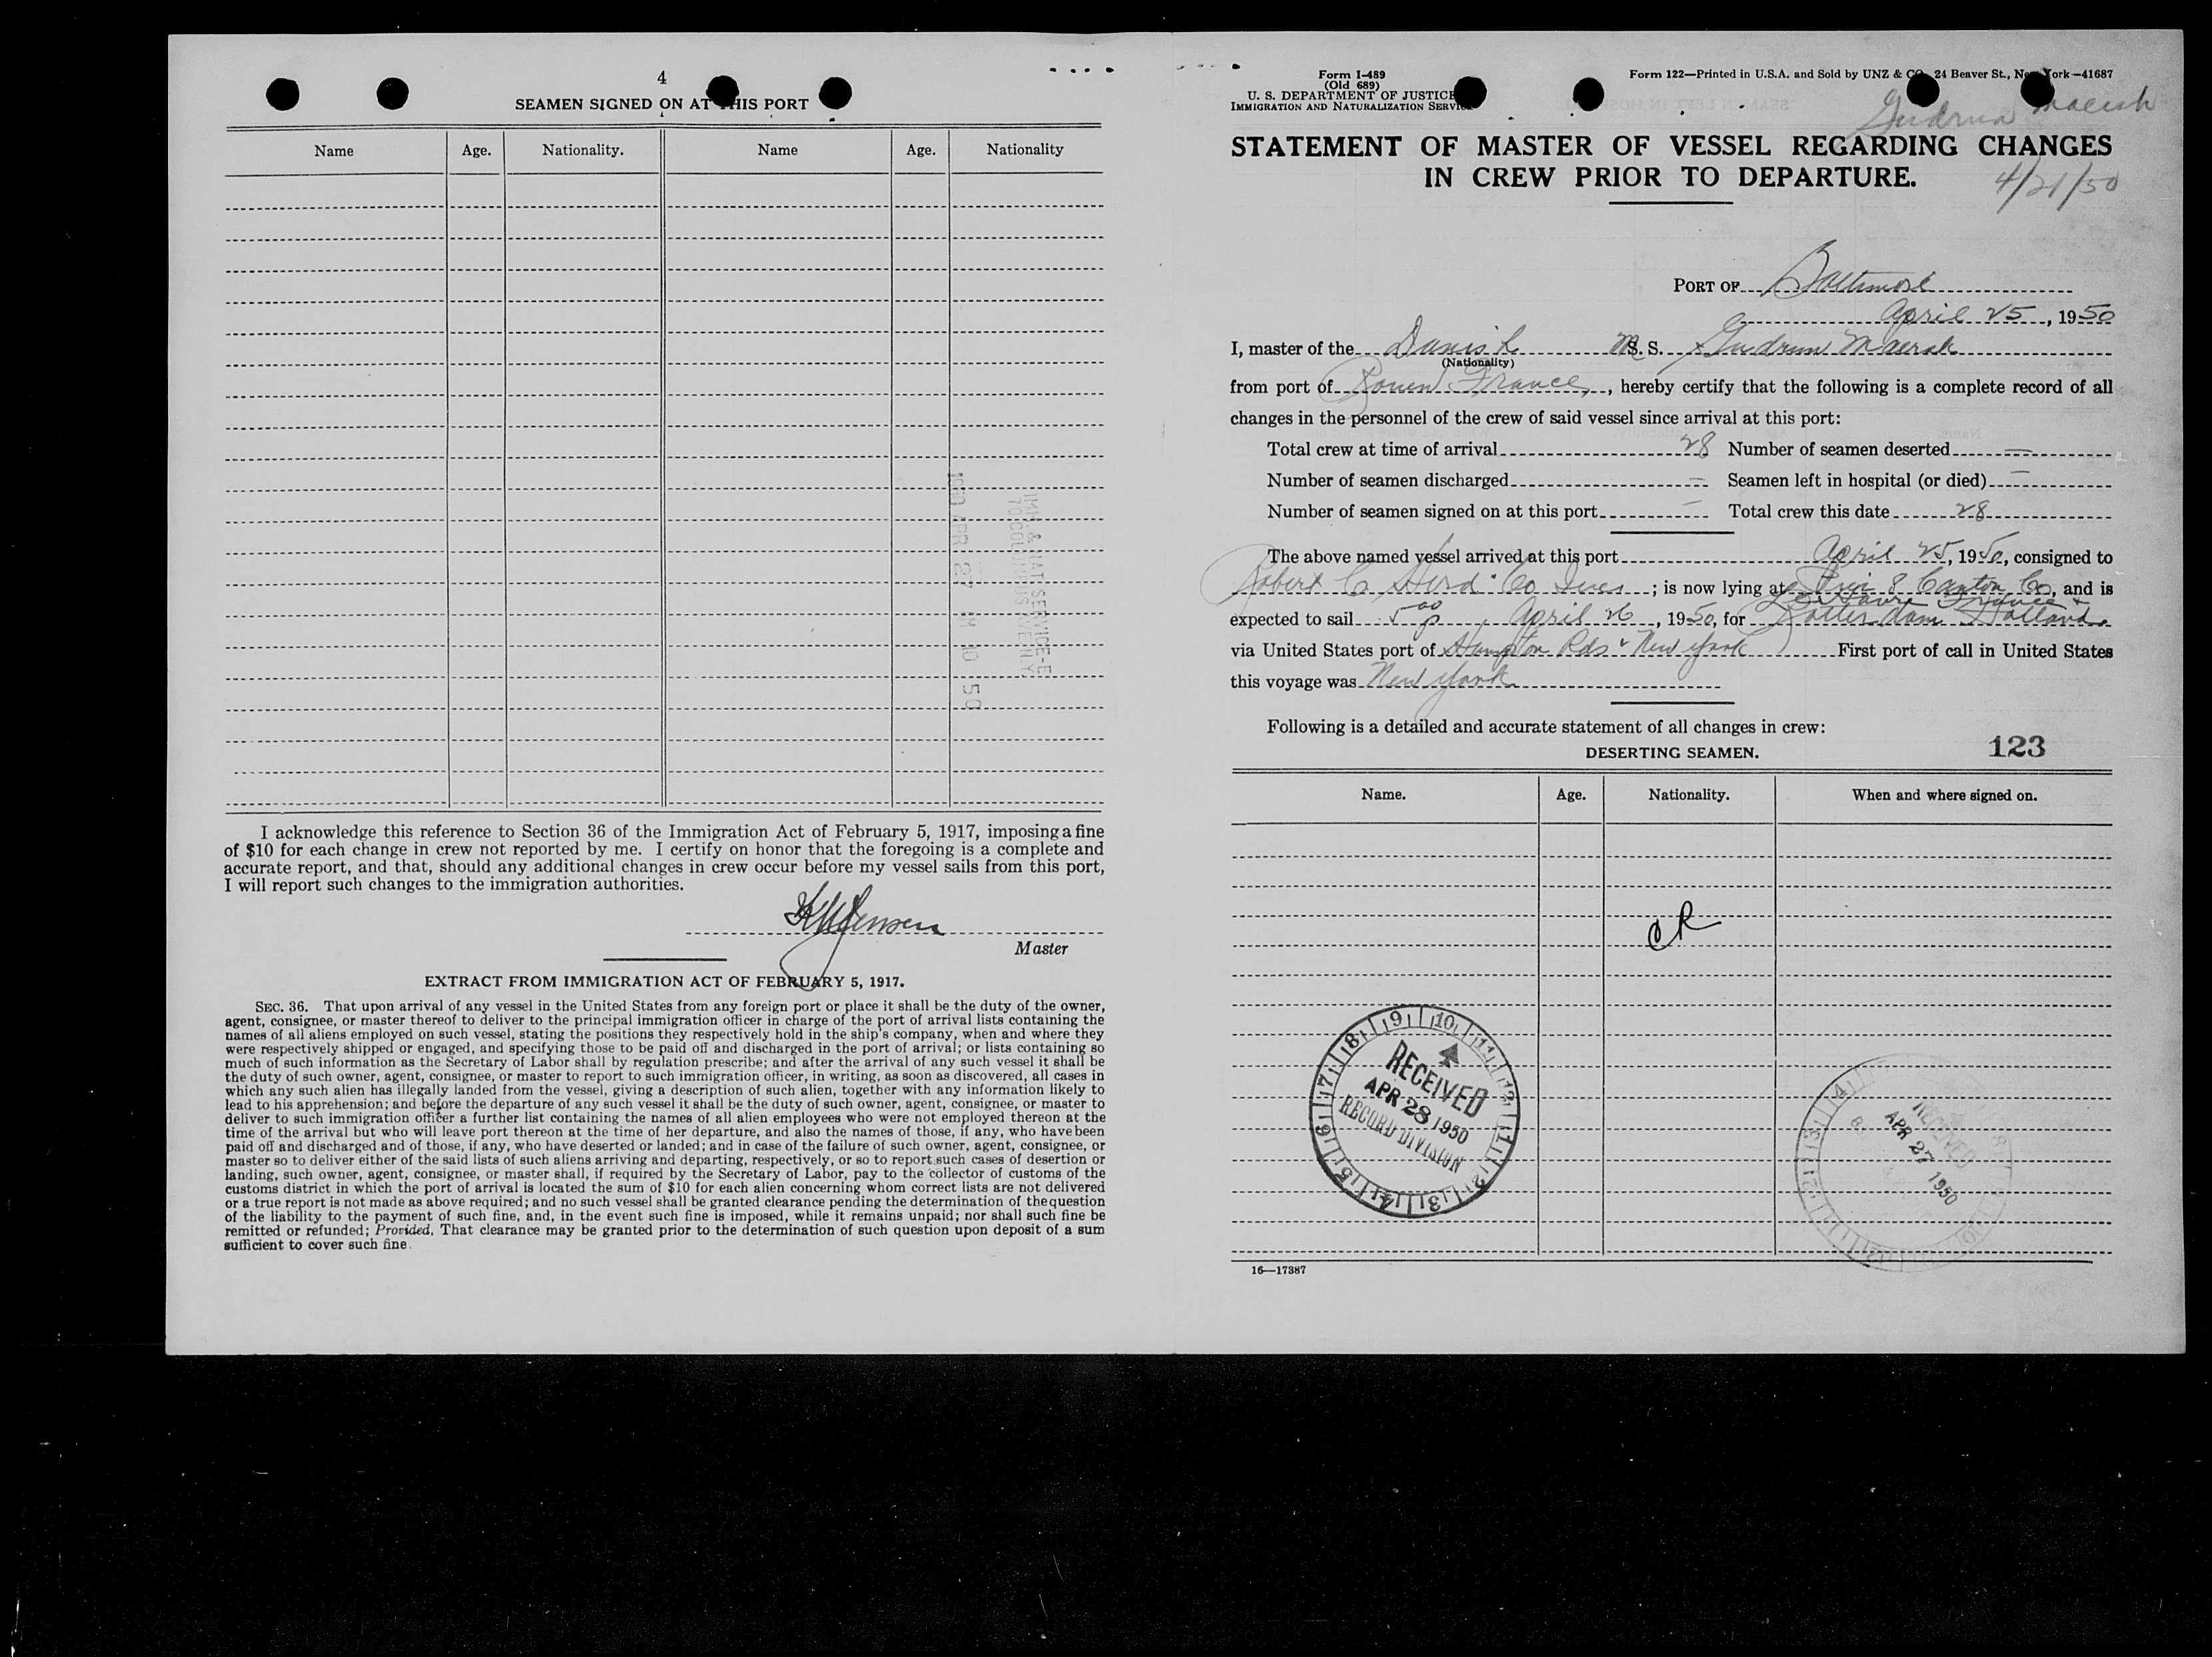 4
SEAMEN SIGNED ON AT THIS PORT
Name Age. Nationality. Name Age. Nationality
IMM. & NAT. SERVICE-E
70 COLUMBUS AVE NY
1950 APR 27 AM 10 50
I acknowledge this reference to Section 36 of the Immigration Act of February 5, 1917, imposing a fine
of $10 for each change in crew not reported by me. I certify on honor that the foregoing is a complete and
accurate report, and that, should any additional changes in crew occur before my vessel sails from this port,
I will report such changes to the immigration authorities.
Jensen
Master
EXTRACT FROM IMMIGRATION ACT OF FEBRUARY 5, 1917.
SEC. 36. That upon arrival of any vessel in the United States from any foreign port or place it shall be the duty of the owner,
agent, consignee, or master thereof to deliver to the principal immigration officer in charge of the port of arrival lists containing the
names of all aliens employed on such vessel, stating the positions they respectively hold in the ship's company, when and where they
were respectively shipped or engaged, and specifying those to be paid off and discharged in the port of arrival; or lists containing so
much of such information as the Secretary of Labor shall by regulation prescribe; and after the arrival of any such vessel it shall be
the duty of such owner, agent, consignee, or master to report to such immigration officer, in writing, as soon as discovered, all cases in
which any such alien has illegally landed from the vessel, giving a description of such alien, together with any information likely to
lead to his apprehension; and before the departure of any such vessel it shall be the duty of such owner, agent, consignee, or master to
deliver to such immigration officer a further list containing the names of all alien employees who were not employed thereon at the
time of the arrival but who will leave port thereon at the time of her departure, and also the names of those, if any, who have been
paid off and discharged and of those, if any, who have deserted or landed; and in case of the failure of such owner, agent, consignee, or
master so to deliver either of the said lists of such aliens arriving and departing, respectively, or so to report such cases of desertion or
landing, such owner, agent, consignee, or master shall, if required by the Secretary of Labor, pay to the collector of customs of the
customs district in which the port of arrival is located the sum of $10 for each alien concerning whom correct lists are not delivered
or a true report is not made as above required; and no such vessel shall be granted clearance pending the determination of the question
of the liability to the payment of such fine, and, in the event such fine is imposed, while it remains unpaid; nor shall such fine be
remitted or refunded; Provided, That clearance may be granted prior to the determination of such question upon deposit of a sum
sufficient to cover such fine.
Form I-489
(Old 689)
U. S. DEPARTMENT OF JUSTICE
IMMIGRATION AND NATURALIZATION SERVICE
Form 122—Printed in U.S.A. and Sold by UNZ & CO. 24 Beaver St., New York—41687
Gudrun Maersk
STATEMENT OF MASTER OF VESSEL REGARDING CHANGES
IN CREW PRIOR TO DEPARTURE.
4/21/50
PORT OF Baltimore
April 25, 1950
I, master of the Danish M.S. Gudrun Maersk
(Nationality)
from port of Rouen France, hereby certify that the following is a complete record of all
changes in the personnel of the crew of said vessel since arrival at this port:
Total crew at time of arrival 28 Number of seamen deserted —
Number of seamen discharged — Seamen left in hospital (or died) —
Number of seamen signed on at this port — Total crew this date 28
The above named vessel arrived at this port April 25, 1950, consigned to
Robert C Herd Co Inc; is now lying at Pier 8 Canton Co, and is
Le Havre France &
expected to sail 5 00 p April 26, 1950, for Rotterdam Holland
via United States port of Hampton Rds & New York First port of call in United States
this voyage was New York
Following is a detailed and accurate statement of all changes in crew:
DESERTING SEAMEN. 123
Name. Age. Nationality. When and where signed on.
RECEIVED
APR 28 1950
RECORD DIVISION
RECEIVED
APR 27 1950
16—17387